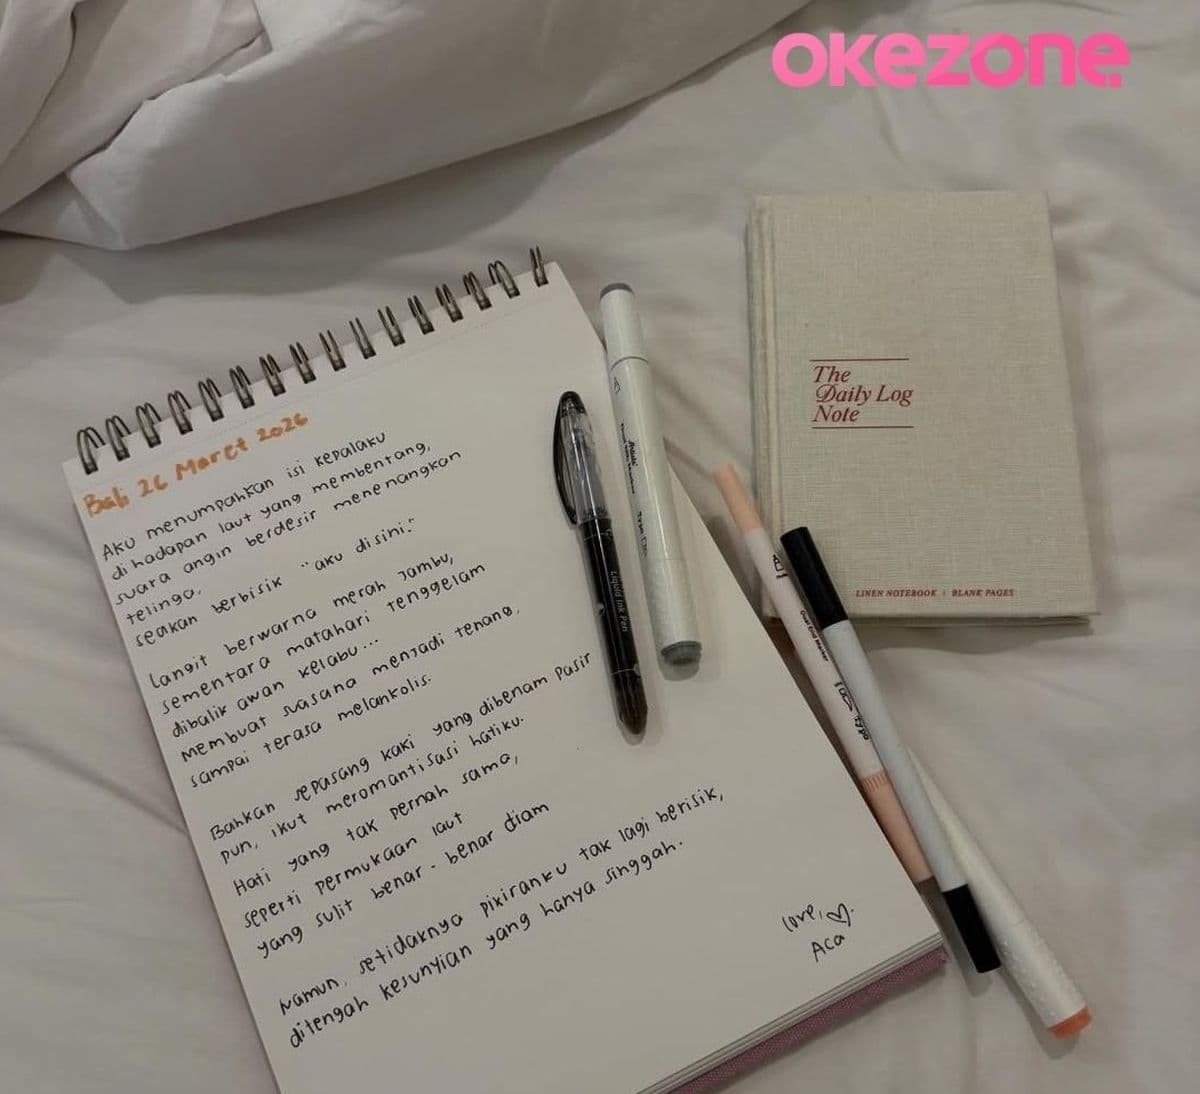 OKEZONE
Bali 26 Maret 2026
Aku menumpahkan isi kepalaku
di hadapan laut yang membentang,
suara angin berdesir menenangkan
telinga.
seakan berbisik "aku disini."
Langit berwarna merah jambu,
sementara matahari tenggelam
dibalik awan kelabu...
membuat suasana menjadi tenang,
sampai terasa melankolis.
Bahkan sepasang kaki yang dibenam pasir
pun, ikut meromantisasi hatiku.
Hati yang tak pernah sama,
seperti permukaan laut
yang sulit benar-benar diam
Namun, setidaknya pikiranku tak lagi berisik,
ditengah kesunyian yang hanya singgah.
love,
Aca
Liquid Ink Pen
The
Daily Log
Note
LINEN NOTEBOOK | BLANK PAGES
Dual End Marker
typo